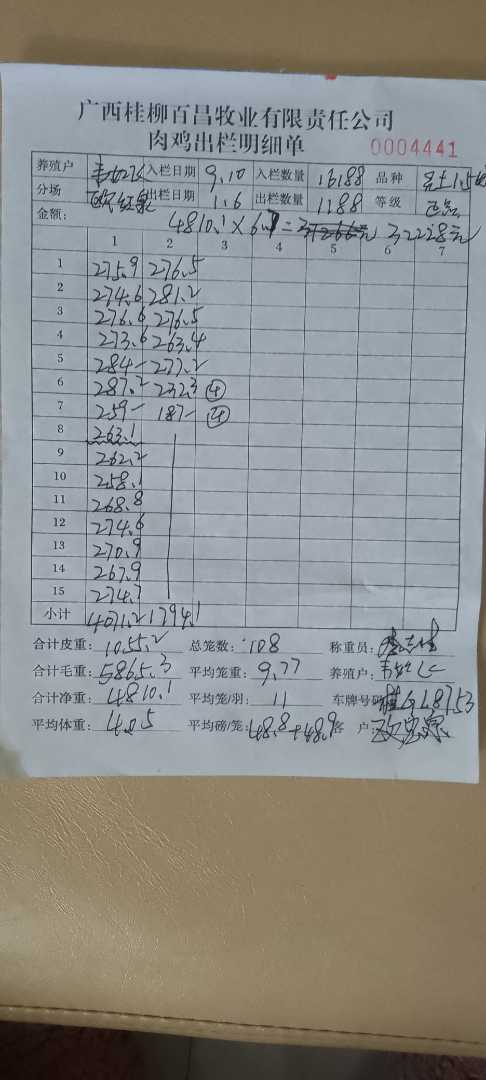 广西桂柳百昌牧业有限责任公司
肉鸡出栏明细单 0004441
养殖户 入栏日期 9.10 入栏数量 16188 品种
分场 出栏日期 1.6 出栏数量 1188 等级
金额: 4810.1×6.7= 32228元
1 2 3 4 5 6 7
1 275.9 276.5
2 274.6 281.2
3 276.6 276.5
4 273.6 263.4
5 284- 277.2
6 287.2 232.3 ④
7 259- 187- ④
8 263.1
9 262.2
10 258.1
11 268.8
12 274.6
13 270.9
14 267.9
15 274.7
小计 4071.2 1794.1
合计皮重: 1055.2 总笼数: 108 称重员:
合计毛重: 5865.3 平均笼重: 9.77 养殖户:
合计净重: 4810.1 平均笼/羽: 11 车牌号码
平均体重: 4.05 平均磅/笼: 48.8+48.9 客 户: